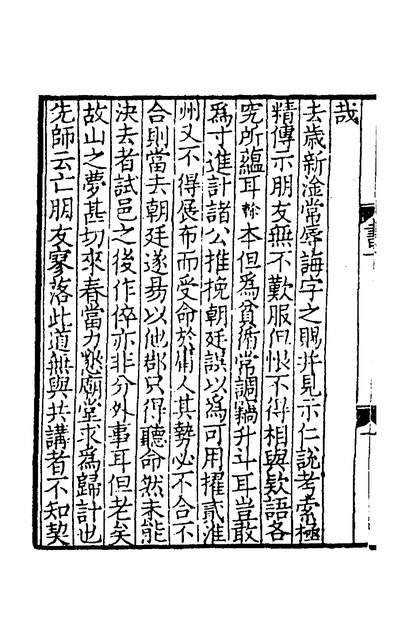 哉
去歲新淦常辱誨字之賜并見示仁說考索極
精傳示朋友無不歎服但恨不得相與欵語各
究所蘊耳榦本但爲貧循常調竊升斗耳豈敢
爲寸進計諸公推挽朝廷誤以爲可用擢貳淮
州又不得展布而受命於庸人其勢必不合不
合則當去朝廷遂昜以他郡只得聽命然未能
決去者試邑之後作倅亦非分外事耳但老矣
故山之夢甚切來春當力懇廟堂求爲歸計也
先師云亡朋友寥落此道無與共講者不知契
書一